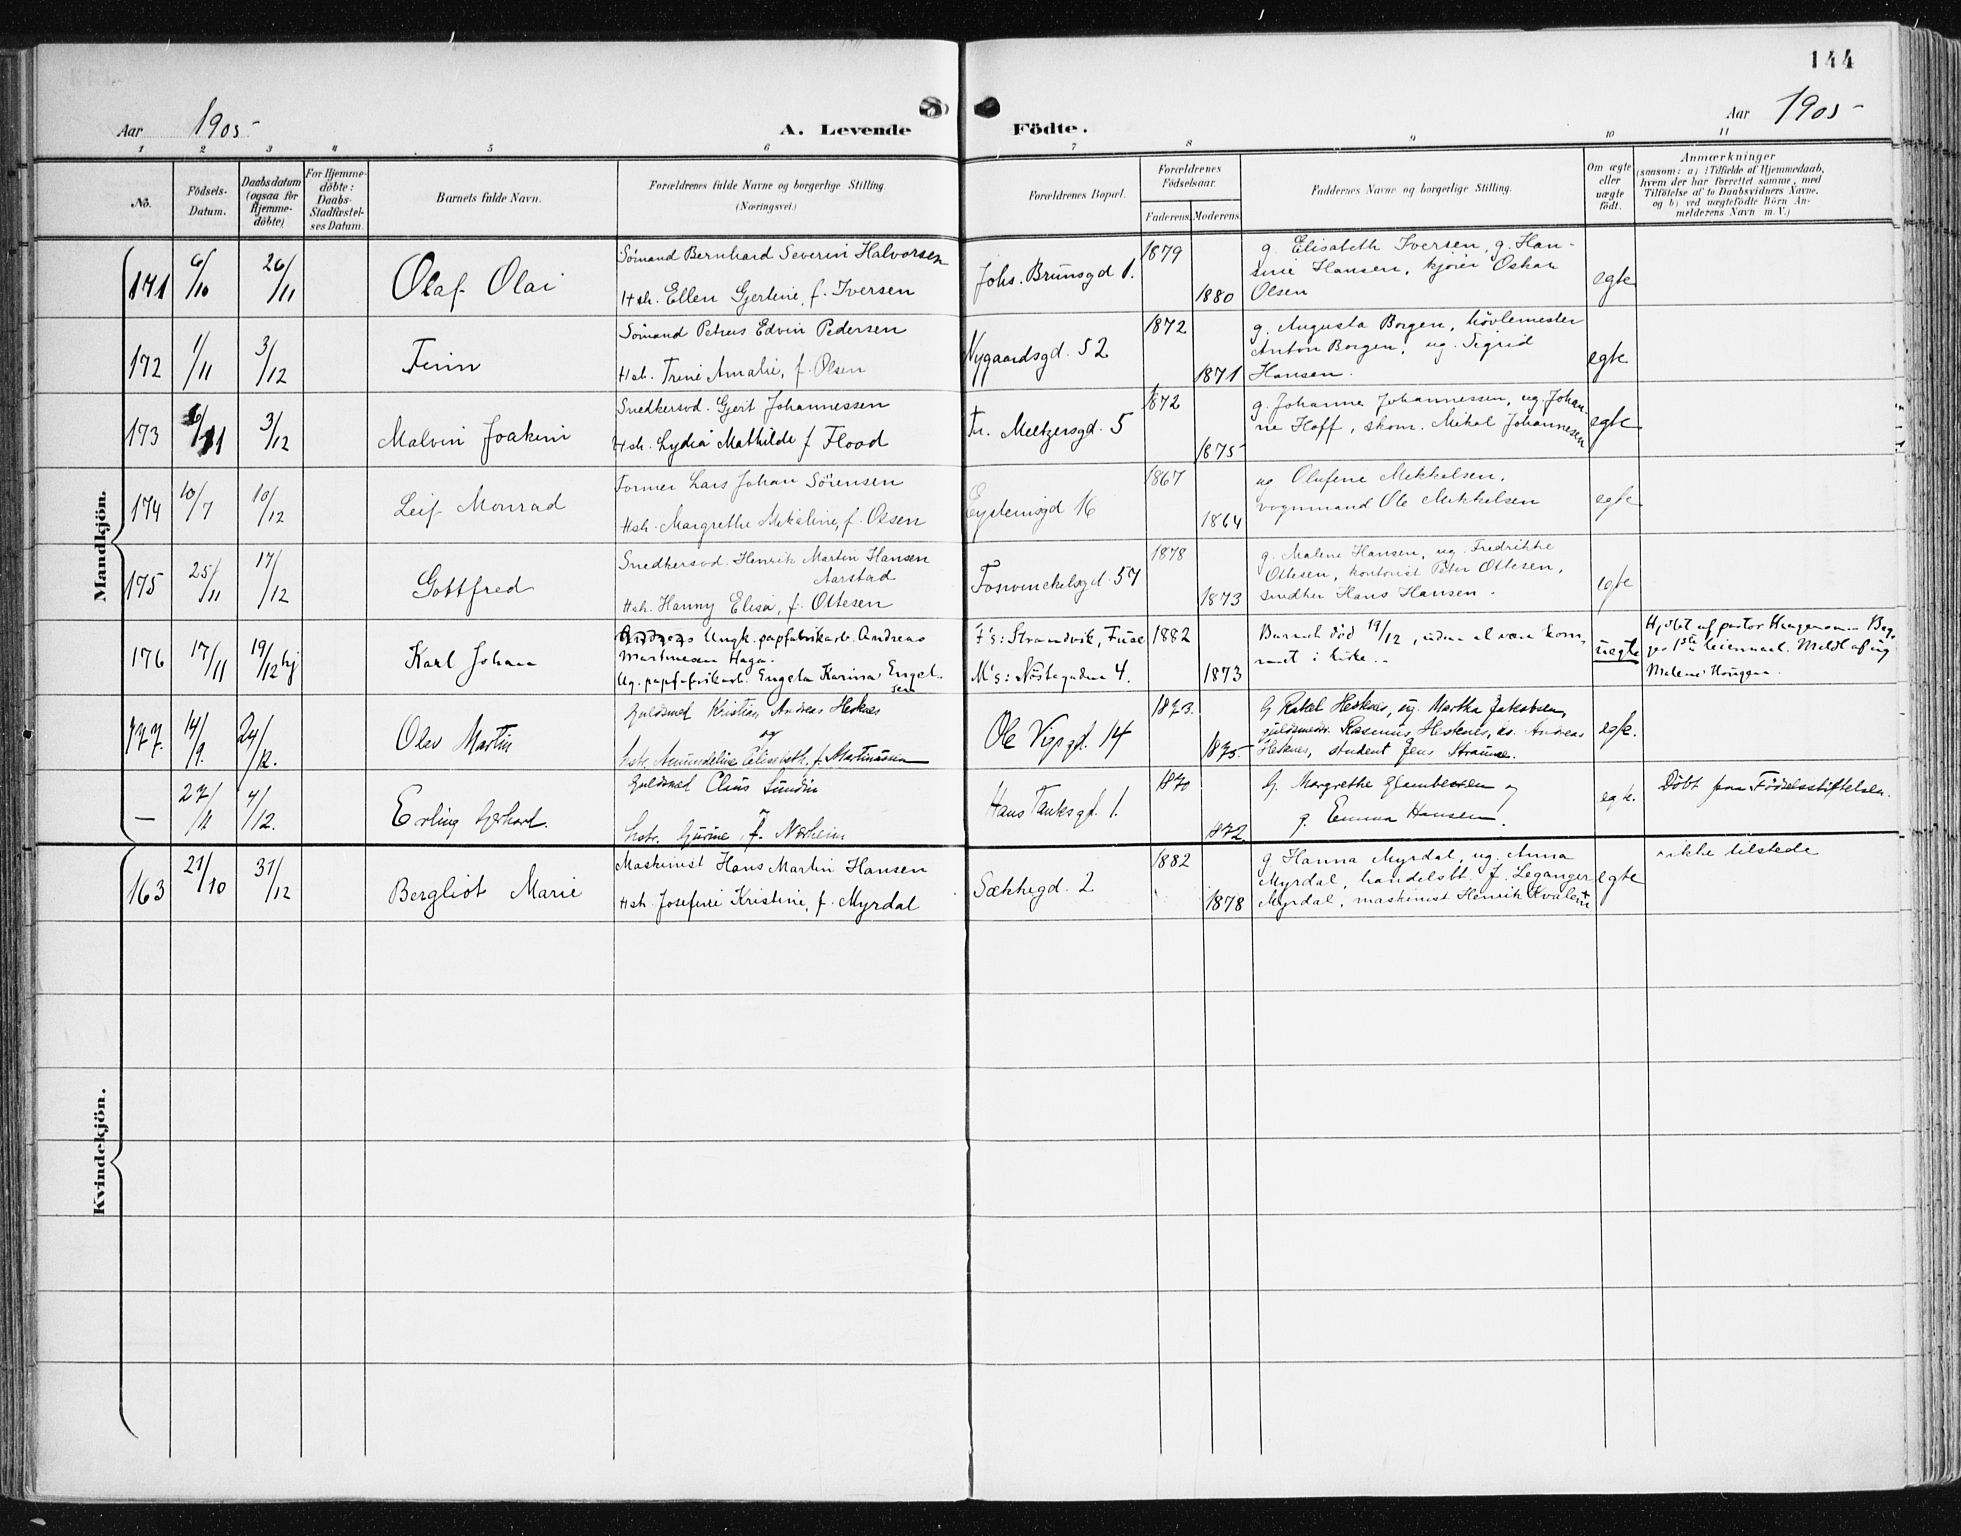 144
Aar 1905
A. Levende Födte.
Aar 1905
1 2 3 4 5 6 7 8 9 10 11
No.
Födsels-
Datum.
Daabsdatum
(ogsaa for
Hjemme-
döbte)
For Hjemme-
döbte:
Daabs-
Stadfæstel-
ses Datum.
Barnets fulde Navn.
Forældrenes fulde Navne og borgerlige Stilling
(Næringsvei.)
Forældrenes Bopæl.
Forældrenes
Födselsaar.
Faderens. Moderens.
Faddernes Navne og borgerlige Stilling.
Om ægte
eller
uægte
födt.
Anmærkninger
(saasom: a) i Tilfælde af Hjemmedaab,
hvem der har forrettet samme, med
Tilföielse af to Daabsvidners Navne,
og b) ved uægtefödte Börn An-
melderens Navn m. V.)
Mandkjön.
171 6/10 26/11 Olaf Olai
Sömand Bernhard Severin Halvorsen
Hst. Ellen Gjertine, f. Iversen
Johs. Brunsgd 1.
1879
1880
g. Elisabeth Iversen, g. Han-
sine Hansen, kjører Oskar
Olsen
egte
172 1/11 3/12 Finn
Sömand Petrus Edvin Pedersen
Hst. Trine Amalie, f. Olsen
Nygaardsgd. 52
1872
1871
g. Augusta Borgen, hövlemester
Anton Borgen, ug. Sigrid
Hansen.
egte
173 6/11 3/12 Malvin Joakim
Snedkersvd. Gjert Johannessen
Hst. Lydia Mathilde f Flood
Fr. Meltzersgd. 5
1872
1875
g. Johanne Johannessen, ug. Johan-
ne Hoff, skom. Mikal Johannesen
egte
174 10/7 10/12 Leif Monrad
Former Lars Johan Sörensen
Hst. Margrethe Mikaline, f. Olsen
Eysteinsgd 16
1867
1864
ug Olufine Mikkelsen,
vognmand Ole Mikkelsen
egte
175 25/11 17/12 Gottfred
Snedkersvd. Henrik Martin Hansen
Aarstad
Hst. Hanny Elisa, f. Ottesen
Foswinckelsgd. 57
1878
1873
g. Malene Hansen, ug. Fredrikke
Ottesen, kontorist Peter Ottesen,
snedker Hans Hansen.
egte
176 17/11 19/12 hj Karl Johan
Ungk. papfabrikarb. Andreas
Martinesen Haga.
Ug. papfabrikarb. Engela Karina Engel-
sen
F's: Strandvik, Fuse
M's: Nöstegaden 4.
1882
1873
Barnet död 19/12, uden at være kom-
met i kirke.
uegte
Hj. döbt af pastor
1ste leiermaal. Meldt af ug
Malene
177. 14/9. 24/12. Olav Martin
Guldsmed Kristian Andreas Hesknes
og
hstr. Amundeline Elisabeth, f. Martinussen
Ole Visgd. 14
1873.
1875
G. Rakel Hesknes, ug. Martha Jakobsen,
guldsmedsv. Rasmus Hesknes, do. Andreas
Hesknes, student Jens Straume.
egte.
— 27/11 4/12. Erling Gerhard.
Guldsmed Claus Sundin
hstr. Gurine, f. Nærheim
Hans Tanksgd. 1.
1870
1872.
G. Margrethe og
g. Emma Hansen.
egte.
Döbt paa Födselsstiftelsen.
Kvindekjön.
163 21/10 31/12 Bergliot Marie
Maskinist Hans Martin Hansen
Hst. Josefine Kristine, f. Myrdal
Sækkegd. 2
1882
1878
g Hanna Myrdal, ug. Anna
Myrdal, handelsbt. J. Leganger
Myrdal, maskinist Henrik Kvalem
egte
× ikke tilstede